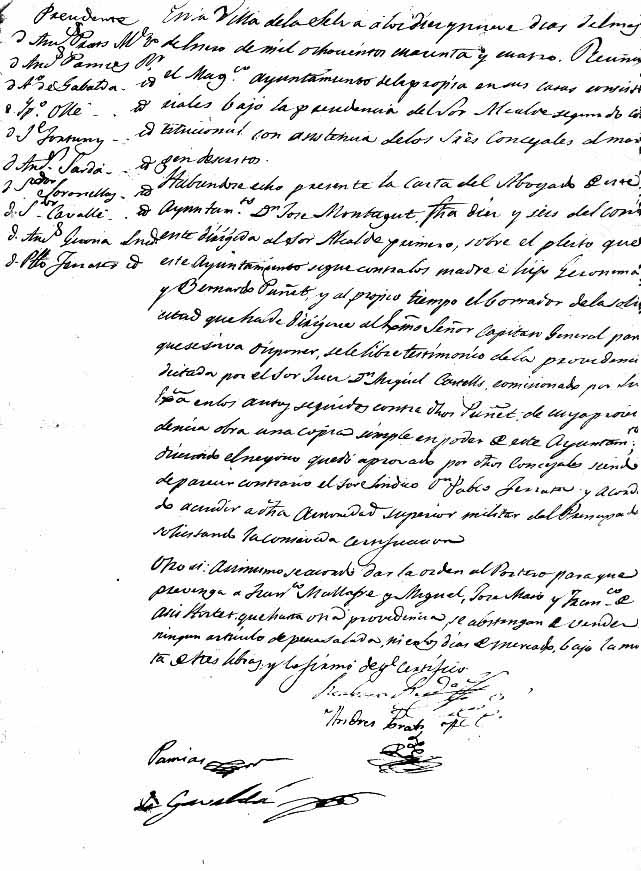 Presidente
d. Ands. Prats Me. 1o.
d. Ands. Pamies Rr.
d. Ao. de Gabalda id
d. Jo. Ollé id
d. Je. Fortuny id
d. Anto. Sardá id
d. Sdor. Soronellas id
d. S. Cavallé id
d. Anto. Girona Sind
d. Pblo. Ferrater id
En la Villa de la Selva a los diez y nueve dias del mes
de Enero de mil ochocientos cuarenta y cuatro. Reunido
el Mago. Ayuntamiento de la propia en sus casas consist
oriales bajo la presidencia del Sor Alcalde segundo cons
titucional con asistencia de los Sres Concejales al mar
gen descritos.
Habiendose echo presente la Carta del Abogado de este
Ayuntamto. Dn. Jose Montagut, fha diez y seis del corri
ente dirigida al Sor Alcalde primero, sobre el pleito que
este Ayuntamiento sigue contra los madre é hijo Geronima
y Bernardo Puñet, y al propio tiempo el borrador de la soli
citud que ha de dirigirse al Exmo Señor Capitan General para
que se sirva disponer, se le libre testimonio de la providencia
dictada por el Sor Juez Dn. Miguel Castells, comisionado por Su
Exa. en los autos seguidos contra dhos Puñet, de cuya provi
dencia obra una copia simple en poder de este Ayuntamto.
discutido el negocio quedó aprovado por dhos Concejales siendo
de parecer contrario el Sor Sindico Dn. Pablo Ferrater y acord
dó acudir a dha Autoridad superior militar del Principado
solicitando la consavida certificacion
Otro si: Asimismo se acordó dar la orden al Portero para que
prevenga a Franco. Mallafre y Miguel, Jose Masó y Franco. de
Asis Artet que hasta otra providencia, se abstengan de vender
ningun articulo de pesca salada, ni en los dias de mercado, bajo la mul
ta de tres libras, y lo firmó de ql. Certifico
Andres Prats
Pamies
Gavaldá